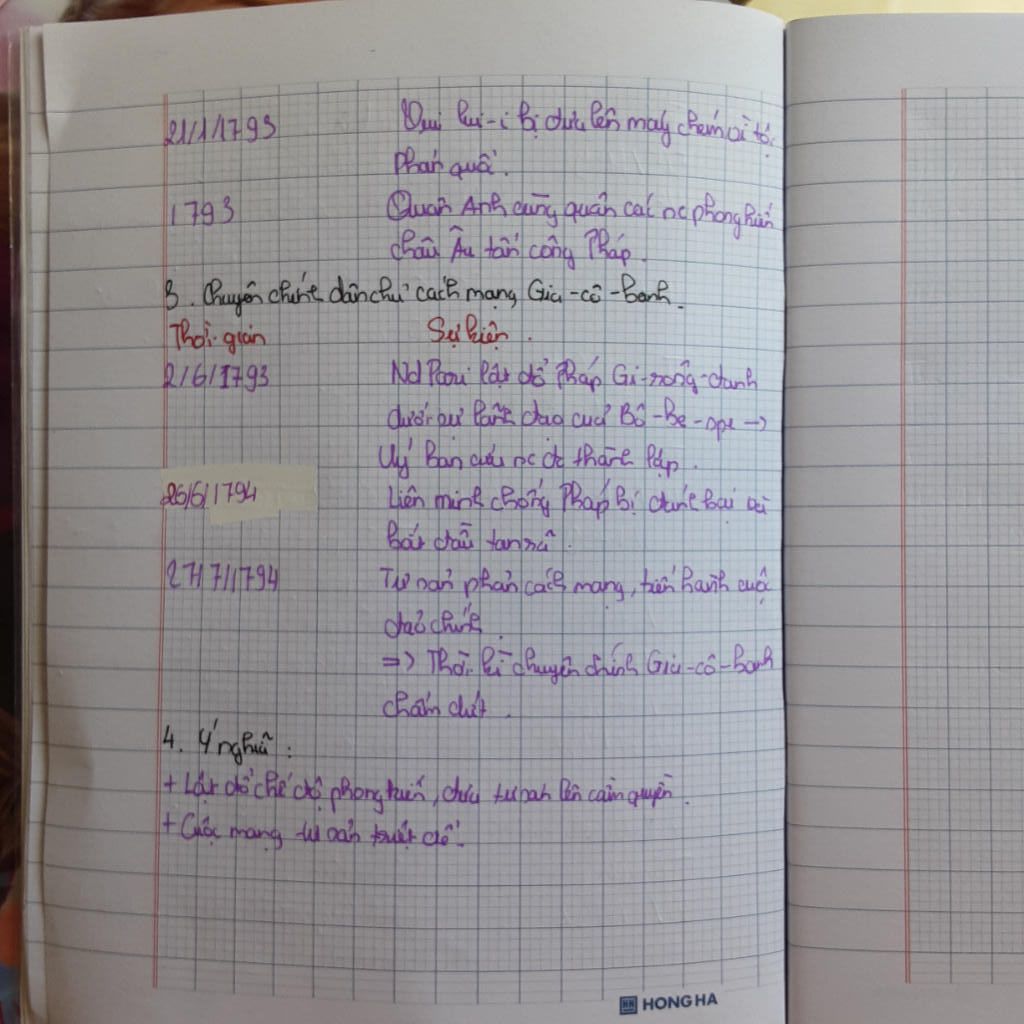 21/1/1793 Vua Lui-i bị đưa lên máy chém vì tội
phản quốc.
1793 Quân Anh cùng quân các nc phong kiến
châu Âu tấn công Pháp.
3. Chuyên chính dân chủ cách mạng Gia-cô-banh.
Thời gian Sự kiện.
2/6/1793 Nd Pari lật đổ Pháp Gi-rông-danh
dưới sự lãnh đạo của Bô-Be-spe ->
Uỷ ban cứu nc đc thành lập.
26/6/1794 Liên minh chống Pháp bị đánh bại và
bắt đầu tan rã.
27/7/1794 Tư sản phản cách mạng, tiến hành cuộc
đảo chính.
=> Thời kì chuyên chính Gia-cô-banh
chấm dứt.
4. Ý nghĩa:
+ Lật đổ chế độ phong kiến, đưa tư sản lên cầm quyền.
+ Cuộc mạng tư sản triệt để.
HH HONG HA